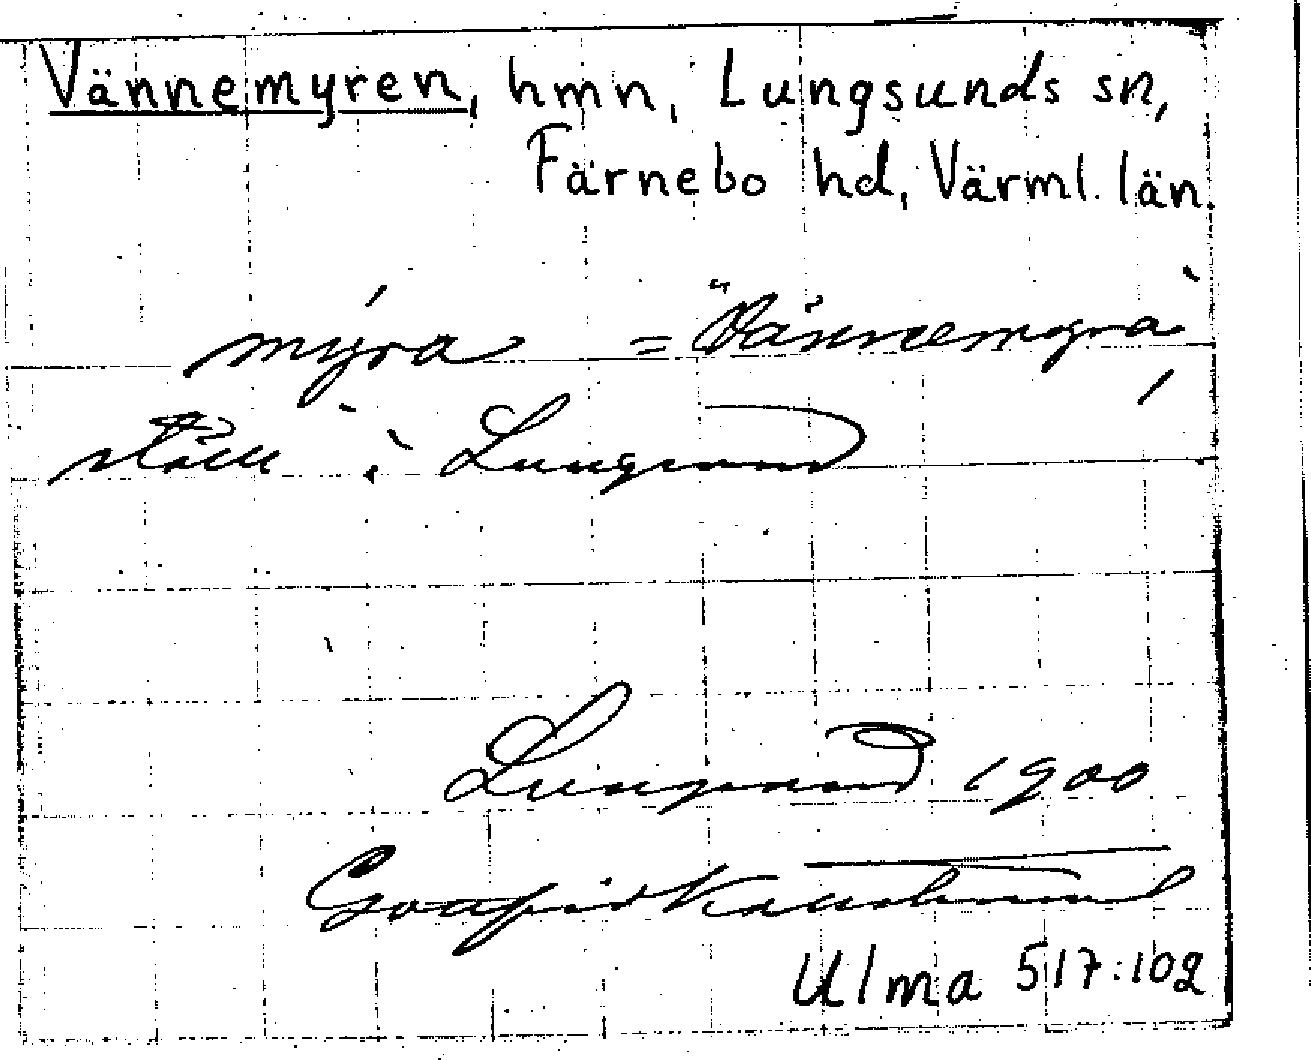 Vännemyren, hmn, Lungsunds sn,
Färnebo hd, Värml. län.
myra = Vännemyra
ställe i Lungsund
Lungsund 1900
Gottfrid Kallstenius
Ulma 517:102